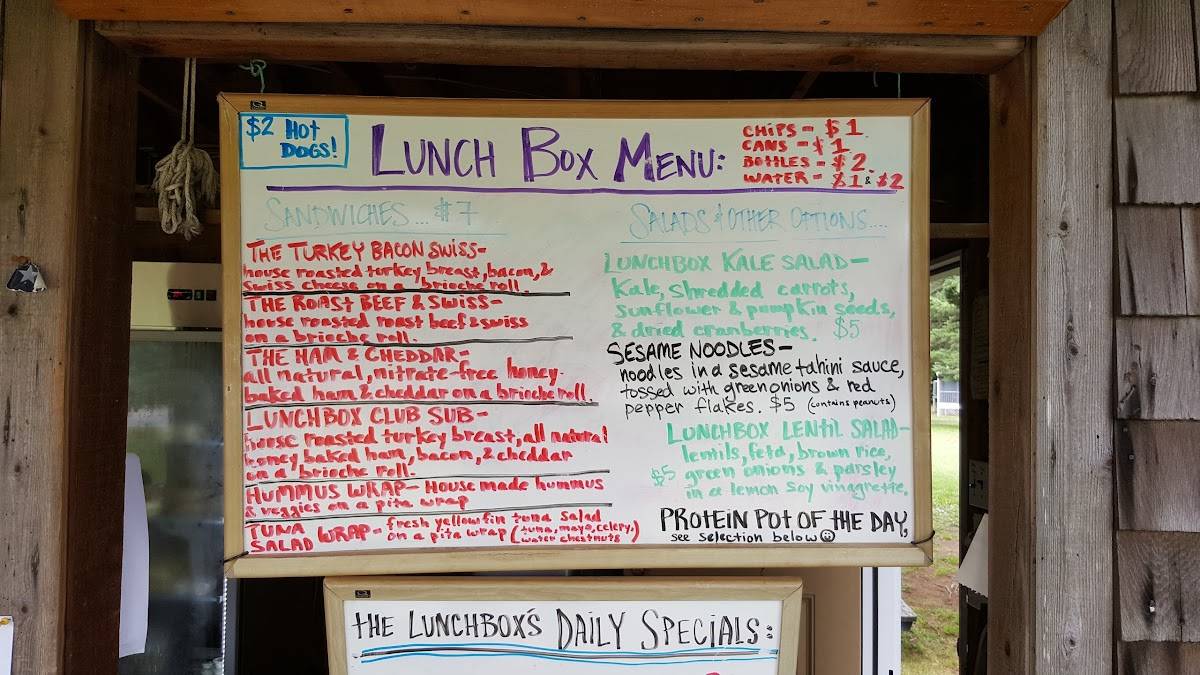 $2 HOT
DOGS!
LUNCH BOX MENU:
CHIPS - $1
CANS - $1
BOTTLES - $2.
WATER - $1 & $2
SANDWICHES... $7
THE TURKEY BACON SWISS-
house roasted turkey breast, bacon, &
swiss cheese on a brioche roll.
THE ROAST BEEF & SWISS-
house roasted roast beef & swiss
on a brioche roll.
THE HAM & CHEDDAR-
all natural, nitrate-free honey-
baked ham & cheddar on a brioche roll.
LUNCHBOX CLUB SUB-
house roasted turkey breast, all natural
honey baked ham, bacon, & cheddar
on a brioche roll.
HUMMUS WRAP- House made hummus
& veggies on a pita wrap
TUNA SALAD WRAP- fresh yellowfin tuna salad
on a pita wrap (tuna, mayo, celery,
water chestnuts)
SALADS & OTHER OPTIONS....
LUNCHBOX KALE SALAD-
Kale, shredded carrots,
sunflower & pumpkin seeds,
& dried cranberries. $5
SESAME NOODLES-
noodles in a sesame tahini sauce,
tossed with green onions & red
pepper flakes. $5 (contains peanuts)
LUNCHBOX LENTIL SALAD-
lentils, feta, brown rice,
$5 green onions & parsley
in a lemon soy vinagrette.
PROTEIN POT OF THE DAY,
see selection below☺
THE LUNCHBOX'S DAILY SPECIALS: